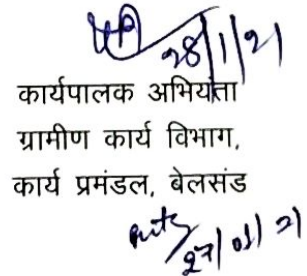 28/1/21
कार्यपालक अभियंता
ग्रामीण कार्य विभाग,
कार्य प्रमंडल, बेलसंड
27/01/21